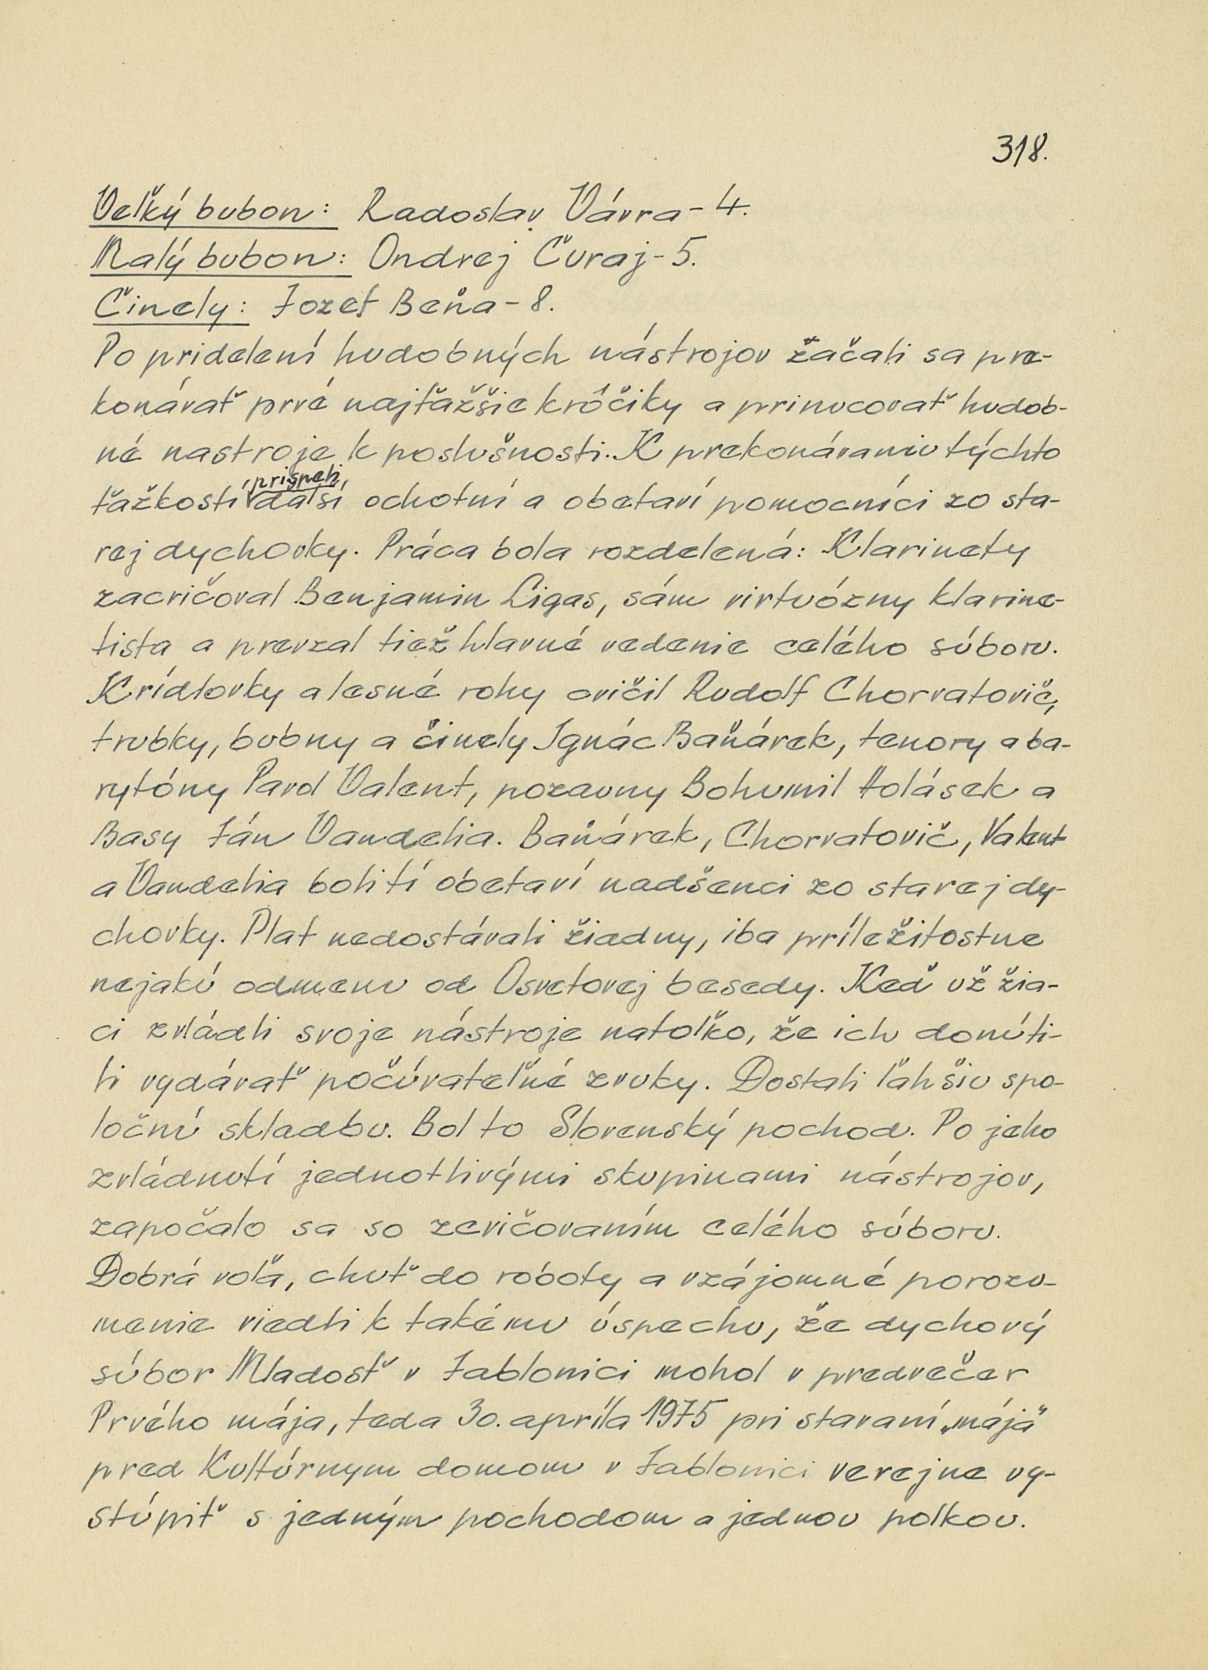 318.
Veľký bubon: Radoslav Vávra - 4.
Malý bubon: Ondrej Čuraj - 5.
Činely: Jozef Beňa - 8.
Po pridelení hudobných nástrojov začali sa pre-
konávať prvé najťažšie krôčiky a prinucovať hudob-
né nastroje k poslušnosti. K prekonávaniu týchto
prispeli
ťažkostí ďalší ochotní a obetaví pomocníci zo sta-
rej dychovky. Práca bola rozdelená: Klarinety
zacričoval Benjamin Ligas, sám virtuózny klarine-
tista a prevzal tiež hlavné vedenie celého súboru.
Krídlovky a lesné rohy cvičil Rudolf Chorvatovič,
trubky, bubny a činely Ignác Baňárek, tenory a ba-
rytóny Pavol Valent, pozauny Bohumil Holásek a
Basy Ján Vandelia. Baňárek, Chorvatovič, Valent
a Vandelia boli tí obetaví nadšenci zo starej dy-
chovky. Plat nedostávali žiadny, iba príležitostne
nejakú odmenu od Osvetovej besedy. Keď už žia-
ci zvládli svoje nástroje natoľko, že ich donúti-
li vydávať počúvateľné zvuky. Dostali ľahšiu spo-
ločnú skladbu. Bol to Slovenský pochod. Po jeho
zvládnutí jednotlivými skupinami nástrojov,
započalo sa so zcvičovaním celého súboru.
Dobrá voľa, chuť do roboty a vzájomné porozu-
menie viedli k takému úspechu, že dychový
súbor Mladosť v Jablonici mohol v predvečer
Prvého mája, teda 30. apríla 1975 pri stavaní „májä"
pred Kultúrnym domom v Jablonici verejne vy-
stúpiť s jedným pochodom a jednou polkou.